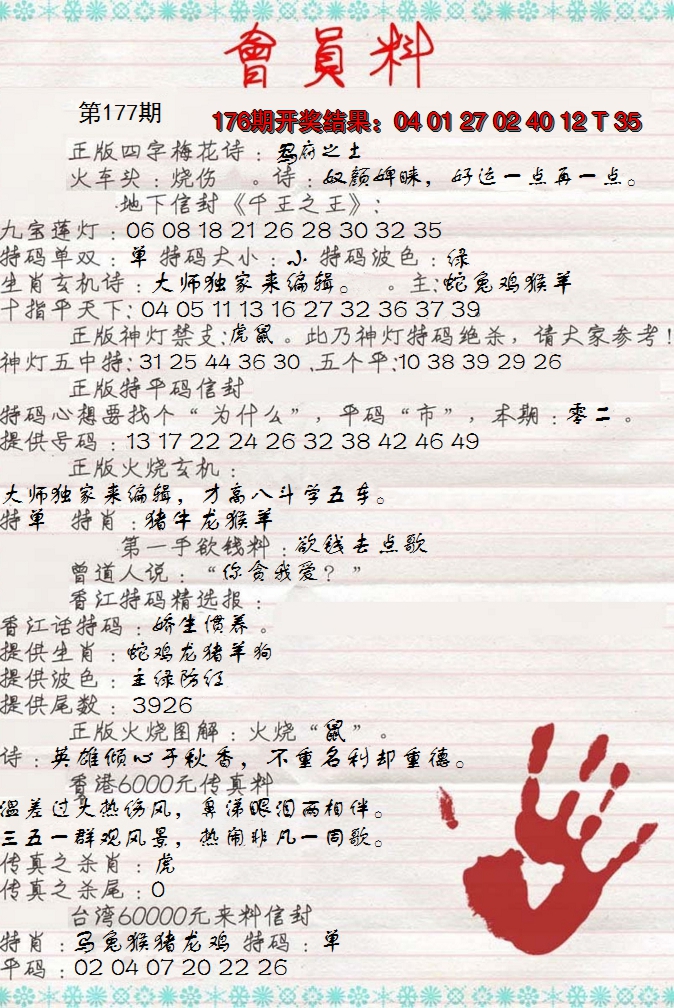 會員料
第177期
176期开奖结果：04 01 27 02 40 12 T 35
正版四字梅花诗：君府之土
火车头：烧伤 。诗：奴颜婢睐，好运一点再一点。
地下信封《千王之王》：
九宝莲灯：06 08 18 21 26 28 30 32 35
特码单双：单 特码大小：小 特码波色：绿
生肖玄机诗：大师独家来编辑。 。主：蛇兔鸡猴羊
十指平天下：04 05 11 13 16 27 32 36 37 39
正版神灯禁支：虎鼠。此乃神灯特码绝杀，请大家参考！
神灯五中特：31 25 44 36 30 .五个平：10 38 39 29 26
正版特平码信封
特码心想要找个“为什么”，平码“市”，本期：零二。
提供号码：13 17 22 24 26 32 38 42 46 49
正版火烧玄机：
大师独家来编辑，才高八斗学五车。
特单 特肖：猪牛龙猴羊
第一手欲钱料：欲钱去点歌
曾道人说：“你贪我爱？”
香江特码精选报：
香江话特码：娇生惯养。
提供生肖：蛇鸡龙猪羊狗
提供波色：主绿防红
提供尾数：3926
正版火烧图解：火烧“鼠”。
诗：英雄倾心于秋香，不重名利却重德。
香港6000元传真料
温差过大热伤风，鼻涕眼泪两相伴。
三五一群观风景，热闹非凡一同歌。
传真之杀肖：虎
传真之杀尾：0
台湾60000元来料信封
特肖：马兔猴猪龙鸡 特码：单
平码：02 04 07 20 22 26